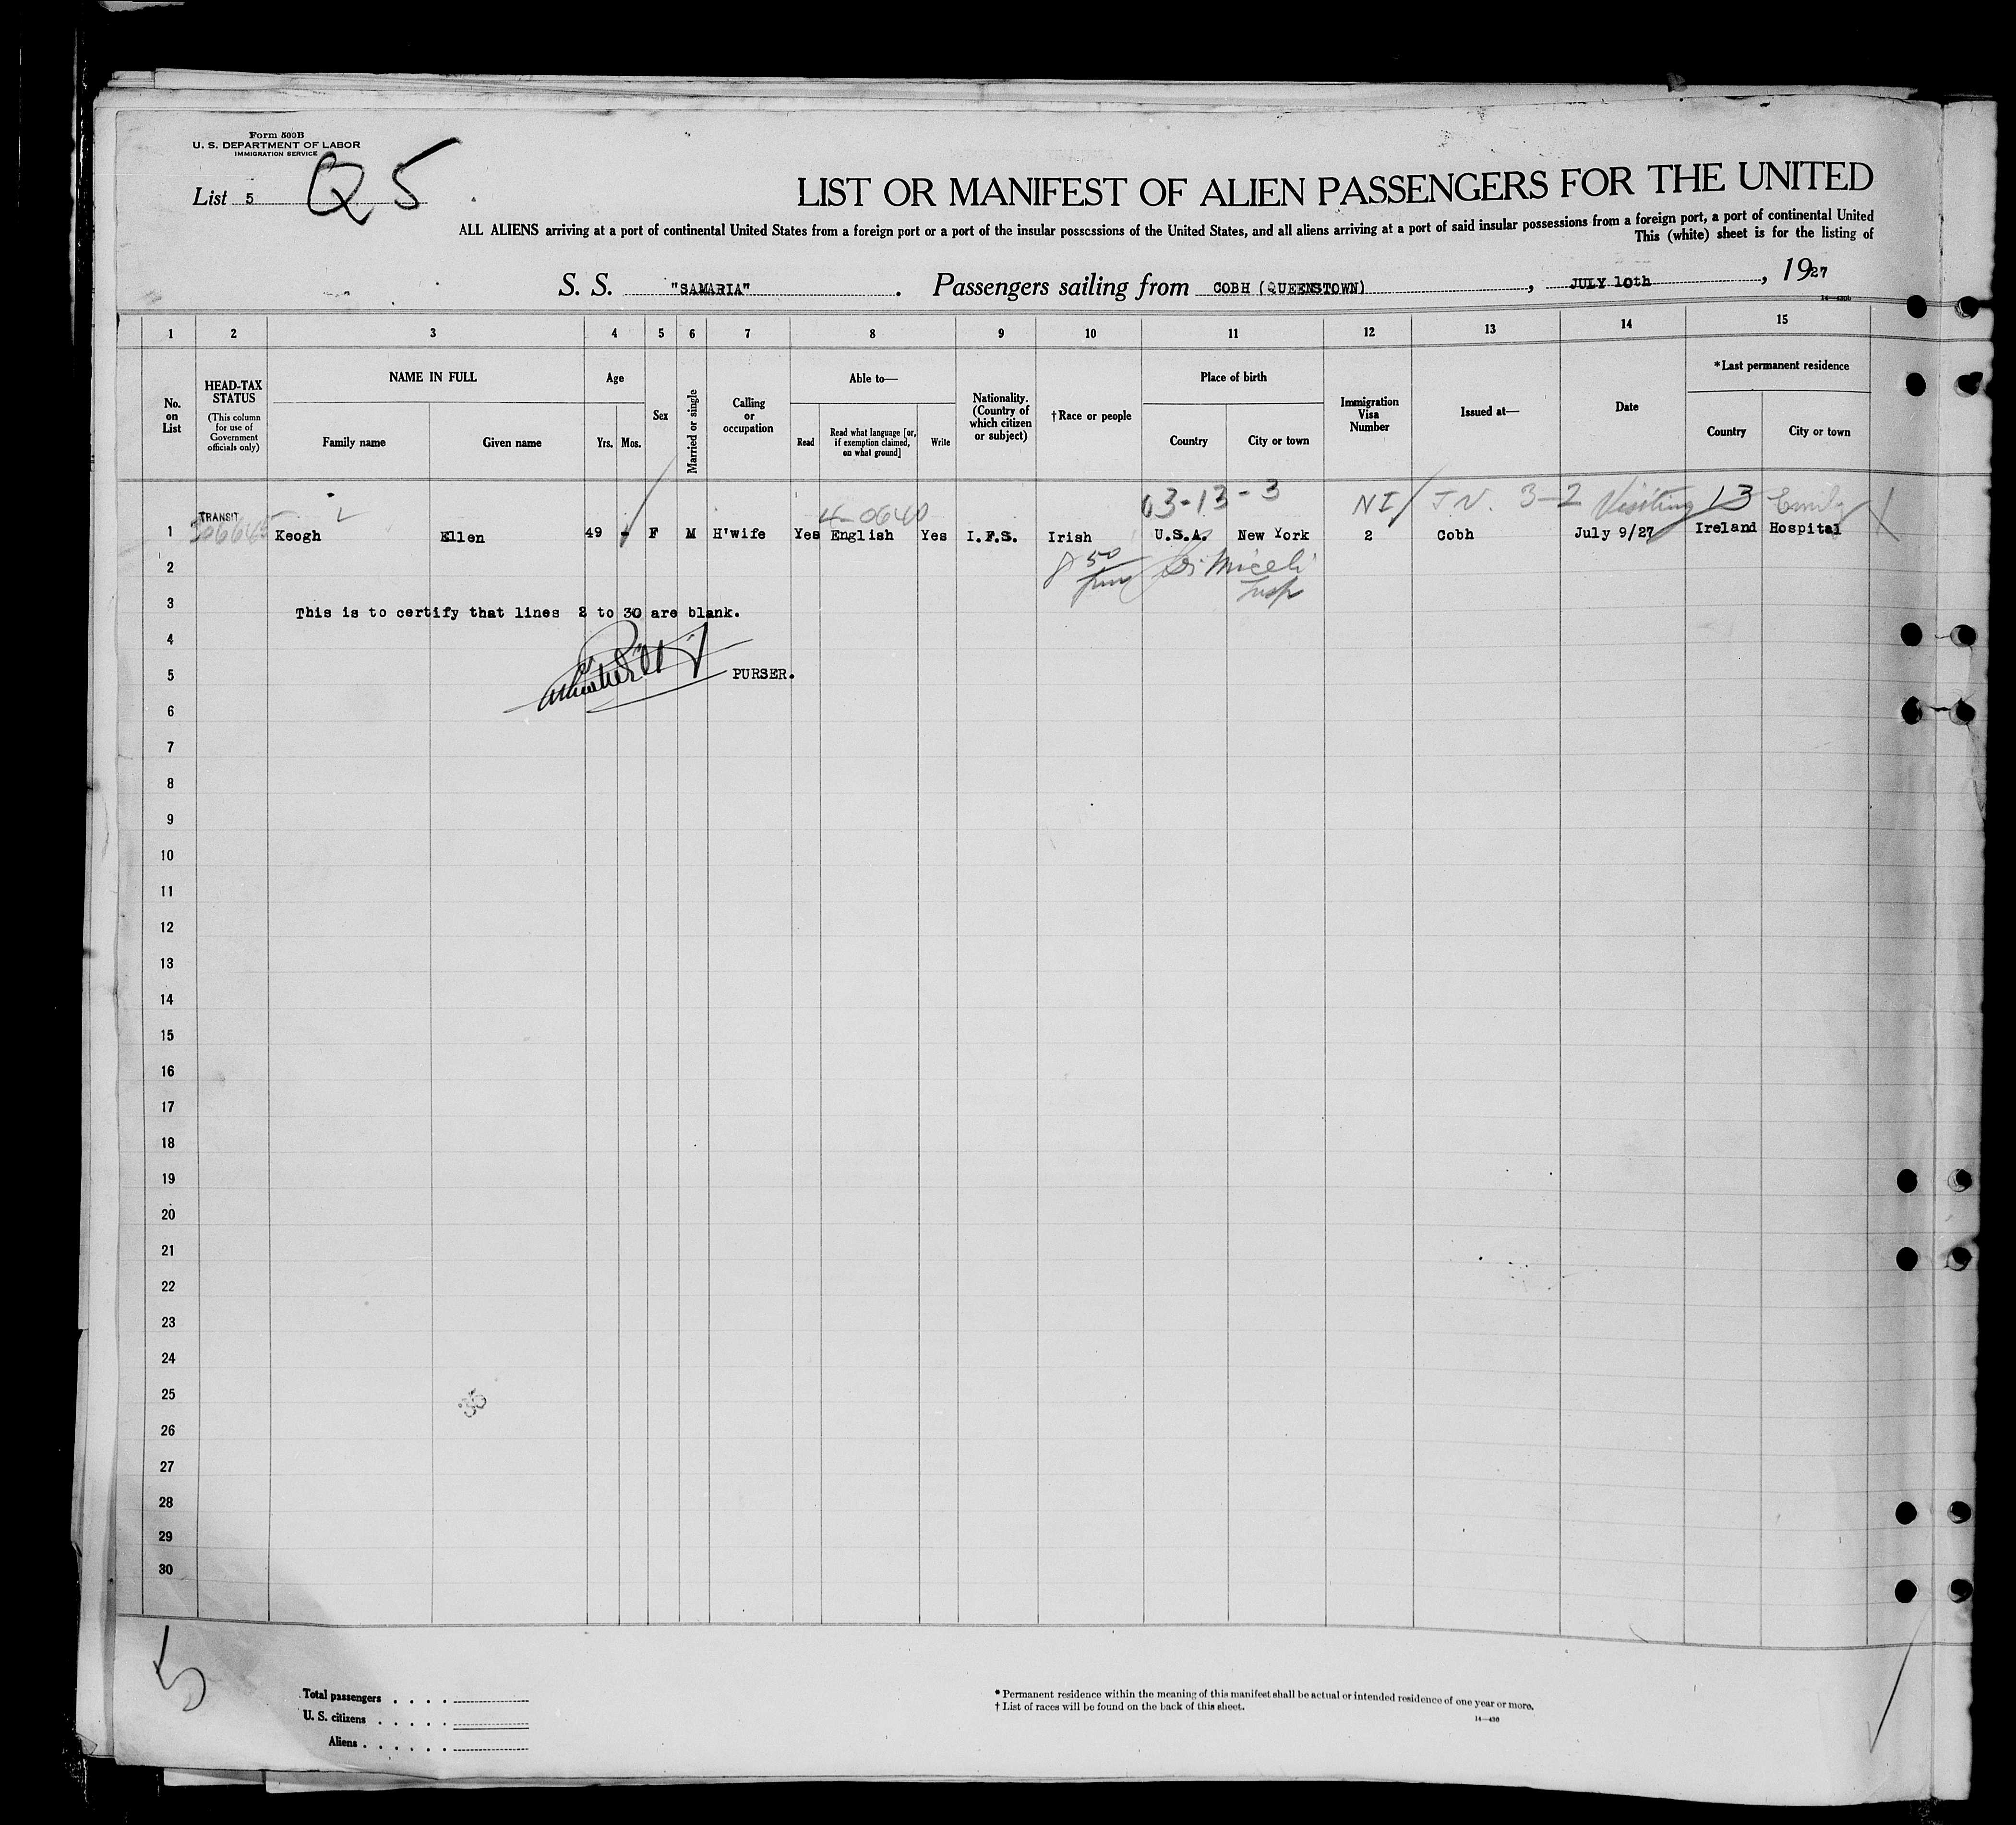 Form 500B
U. S. DEPARTMENT OF LABOR
IMMIGRATION SERVICE
List 5 Q5
LIST OR MANIFEST OF ALIEN PASSENGERS FOR THE UNITED
ALL ALIENS arriving at a port of continental United States from a foreign port or a port of the insular possessions of the United States, and all aliens arriving at a port of said insular possessions from a foreign port, a port of continental United
This (white) sheet is for the listing of
S. S. "SAMARIA". Passengers sailing from COBH (QUEENSTOWN), JULY 10th, 1927
1 2 3 4 5 6 7 8 9 10 11 12 13 14 15
No. on List
HEAD-TAX STATUS
(This column for use of Government officials only)
NAME IN FULL
Family name
Given name
Age
Yrs. Mos.
Sex
Married or single
Calling or occupation
Able to—
Read
Read what language [or, if exemption claimed, on what ground]
Write
Nationality. (Country of which citizen or subject)
†Race or people
Place of birth
Country
City or town
Immigration Visa Number
Issued at—
Date
*Last permanent residence
Country
City or town
4-0640 03-13-3 NI/ 3-2 Visiting 13 Emily
TRANSIT
1 Keogh Ellen 49 - F M H'wife Yes English Yes I.F.S. Irish U.S.A. New York 2 Cobh July 9/27 Ireland Hospital
2 8 50 Miceli
Insp
3 This is to certify that lines 2 to 30 are blank.
4
5 PURSER.
6
7
8
9
10
11
12
13
14
15
16
17
18
19
20
21
22
23
24
25
26
27
28
29
30
5
Total passengers . . . .
U. S. citizens . . . . .
Aliens . . . . . .
* Permanent residence within the meaning of this manifest shall be actual or intended residence of one year or more.
† List of races will be found on the back of this sheet.
14—430